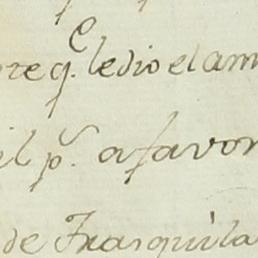 req.e le dio el am
il p.r a favor
de Frasquila